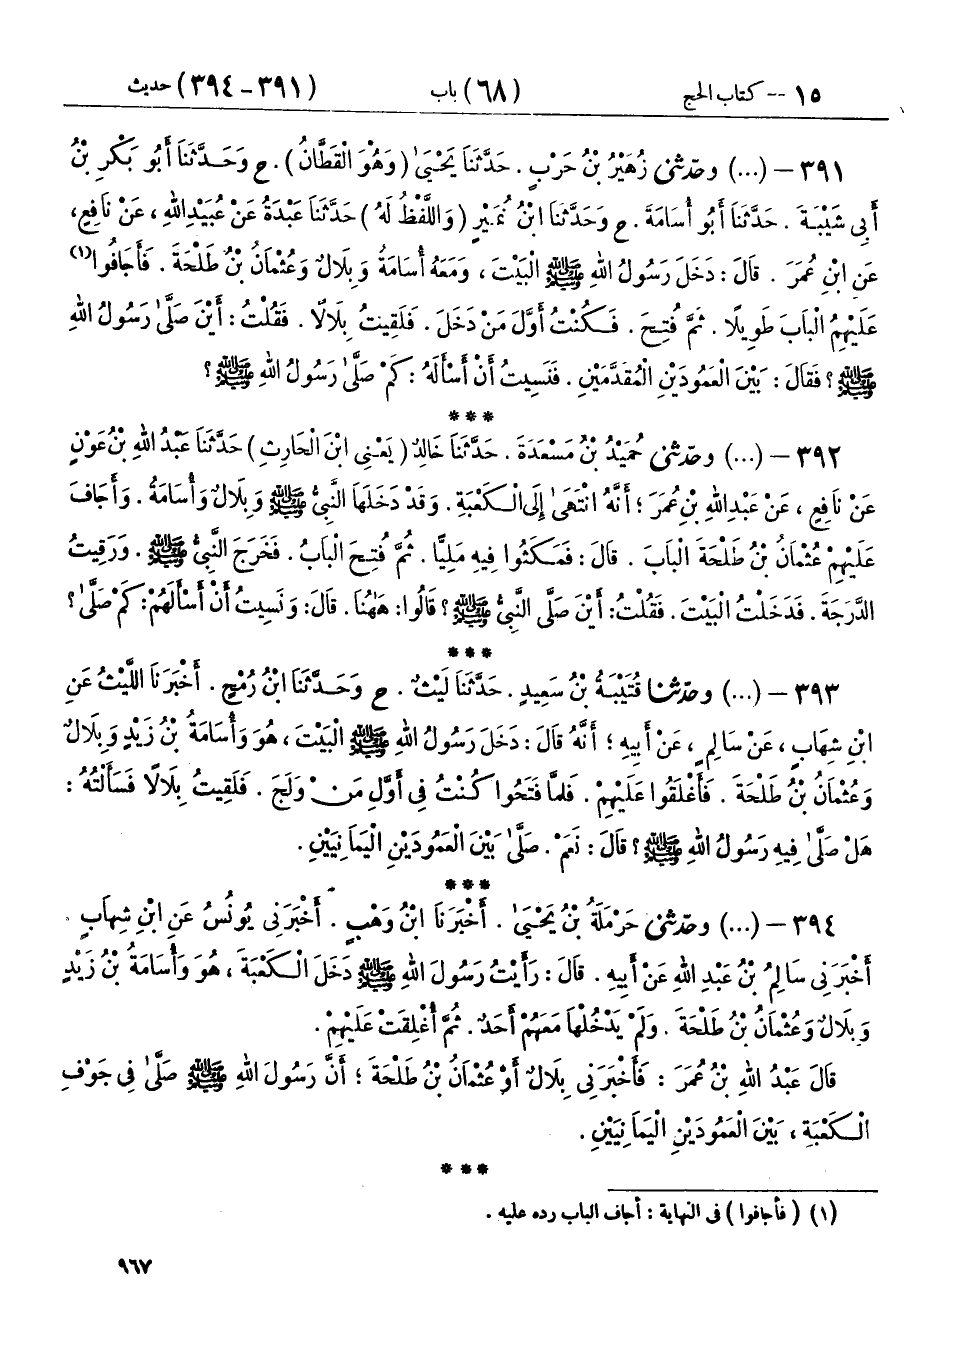 ١٥ -- كتاب الحج (٦٨) باب (٣٩١-٣٩٤) حديث
٣٩١ – (...) وحَدَّثَنِي زُهَيْرُ بْنُ حَرْبٍ. حَدَّثَنَا يَحْيَىٰ (وَهُوَ الْقَطَّانُ). ح وَحَدَّثَنَا أَبُو بَكْرِ بْنُ
أَبِي شَيْبَةَ. حَدَّثَنَا أَبُو أُسَامَةَ. ح وَحَدَّثَنَا ابْنُ نُمَيْرٍ (وَاللَّفْظُ لَهُ) حَدَّثَنَا عَبْدَةُ عَنْ عُبَيْدِ اللهِ، عَنْ نَافِعٍ،
عَنِ ابْنِ عُمَرَ. قَالَ: دَخَلَ رَسُولُ اللهِ ﷺ الْبَيْتَ، وَمَعَهُ أُسَامَةُ وَبِلَالٌ وَعُثْمَانُ بْنُ طَلْحَةَ. فَأَجَافُوا(١)
عَلَيْهِمُ الْبَابَ طَوِيلًا. ثُمَّ فُتِحَ. فَكُنْتُ أَوَّلَ مَنْ دَخَلَ. فَلَقِيتُ بِلَالًا. فَقُلْتُ: أَيْنَ صَلَّىٰ رَسُولُ اللهِ
ﷺ؟ فَقَالَ: بَيْنَ الْعَمُودَيْنِ الْمُقَدَّمَيْنِ. فَنَسِيتُ أَنْ أَسْأَلَهُ: كَمْ صَلَّىٰ رَسُولُ اللهِ ﷺ؟
***
٣٩٢ – (...) وحَدَّثَنِي حُمَيْدُ بْنُ مَسْعَدَةَ. حَدَّثَنَا خَالِدٌ (يَعْنِي ابْنَ الْحَارِثِ) حَدَّثَنَا عَبْدُ اللهِ بْنُ عَوْنٍ
عَنْ نَافِعٍ، عَنْ عَبْدِ اللهِ بْنِ عُمَرَ؛ أَنَّهُ انْتَهَىٰ إِلَى الْكَعْبَةِ. وَقَدْ دَخَلَهَا النَّبِيُّ ﷺ وَبِلَالٌ وَأُسَامَةُ. وَأَجَافَ
عَلَيْهِمْ عُثْمَانُ بْنُ طَلْحَةَ الْبَابَ. قَالَ: فَمَكَثُوا فِيهِ مَلِيًّا. ثُمَّ فُتِحَ الْبَابُ. فَخَرَجَ النَّبِيُّ ﷺ. وَرَقِيتُ
الدَّرَجَةَ. فَدَخَلْتُ الْبَيْتَ. فَقُلْتُ: أَيْنَ صَلَّى النَّبِيُّ ﷺ؟ قَالُوا: هٰهُنَا. قَالَ: وَنَسِيتُ أَنْ أَسْأَلَهُمْ: كَمْ صَلَّىٰ؟
***
٣٩٣ – (...) وحَدَّثَنَا قُتَيْبَةُ بْنُ سَعِيدٍ. حَدَّثَنَا لَيْثٌ. ح وَحَدَّثَنَا ابْنُ رُمْحٍ. أَخْبَرَنَا اللَّيْثُ عَنِ
ابْنِ شِهَابٍ، عَنْ سَالِمٍ، عَنْ أَبِيهِ؛ أَنَّهُ قَالَ: دَخَلَ رَسُولُ اللهِ ﷺ الْبَيْتَ، هُوَ وَأُسَامَةُ بْنُ زَيْدٍ وَبِلَالٌ
وَعُثْمَانُ بْنُ طَلْحَةَ. فَأَغْلَقُوا عَلَيْهِمْ. فَلَمَّا فَتَحُوا كُنْتُ فِي أَوَّلِ مَنْ وَلَجَ. فَلَقِيتُ بِلَالًا فَسَأَلْتُهُ:
هَلْ صَلَّىٰ فِيهِ رَسُولُ اللهِ ﷺ؟ قَالَ: نَعَمْ. صَلَّىٰ بَيْنَ الْعَمُودَيْنِ الْيَمَانِيَيْنِ.
***
٣٩٤ – (...) وحَدَّثَنِي حَرْمَلَةُ بْنُ يَحْيَىٰ. أَخْبَرَنَا ابْنُ وَهْبٍ. أَخْبَرَنِي يُونُسُ عَنِ ابْنِ شِهَابٍ.
أَخْبَرَنِي سَالِمُ بْنُ عَبْدِ اللهِ عَنْ أَبِيهِ. قَالَ: رَأَيْتُ رَسُولَ اللهِ ﷺ دَخَلَ الْكَعْبَةَ، هُوَ وَأُسَامَةُ بْنُ زَيْدٍ
وَبِلَالٌ وَعُثْمَانُ بْنُ طَلْحَةَ. وَلَمْ يَدْخُلْهَا مَعَهُمْ أَحَدٌ. ثُمَّ أُغْلِقَتْ عَلَيْهِمْ.
قَالَ عَبْدُ اللهِ بْنُ عُمَرَ: فَأَخْبَرَنِي بِلَالٌ أَوْ عُثْمَانُ بْنُ طَلْحَةَ؛ أَنَّ رَسُولَ اللهِ ﷺ صَلَّىٰ فِي جَوْفِ
الْكَعْبَةِ، بَيْنَ الْعَمُودَيْنِ الْيَمَانِيَيْنِ.
***
(١) (فأجافوا) فى النهاية: أجاف الباب رده عليه.
٩٦٧